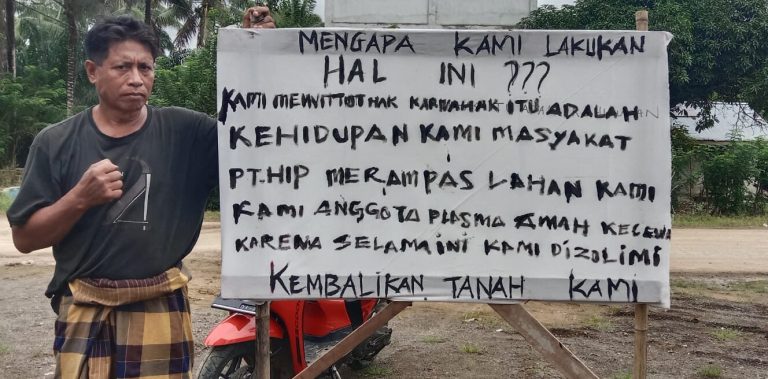 MENGAPA KAMI LAKUKAN
HAL INI ???
KAMI MENUTTOT HAK KARNAHAK ITU ADALAH
KEHIDUPAN KAMI MASYAKAT
PT.HIP MERAMPAS LAHAN KAMI
KAMI ANGGOTA PLASMA AMAH KECEWA
KARENA SELAMA INI KAMI DIZOLIMI
KEMBALIKAN TANAH KAMI